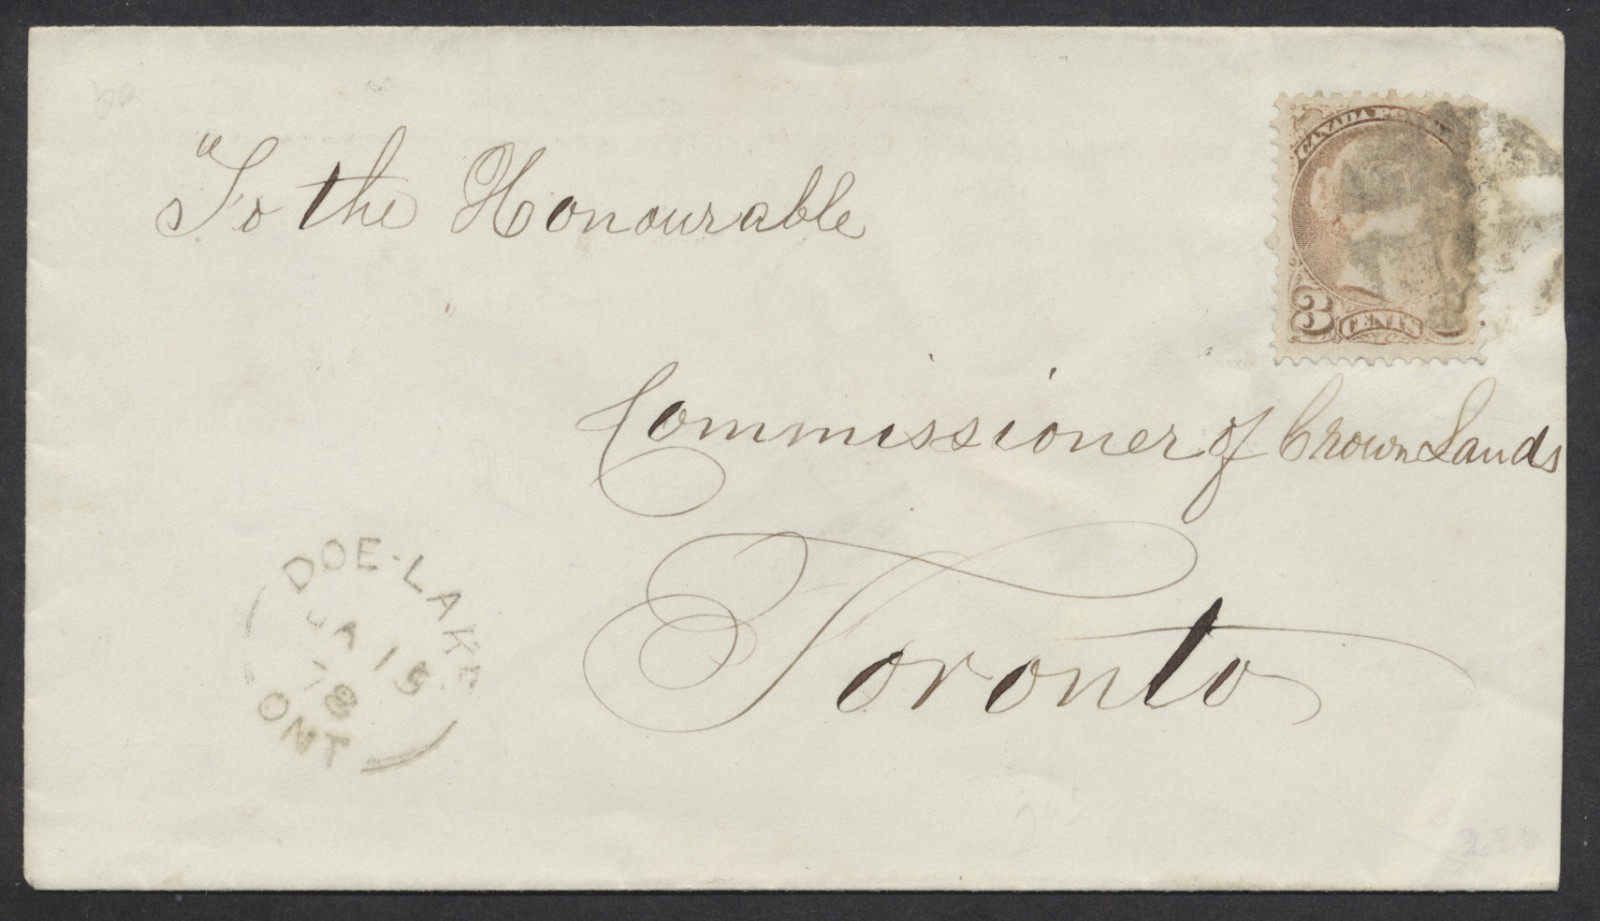 "To the Honourable
CANADA
3 CENTS
Commissioner of Crown Lands
Toronto
DOE-LAKE
JA 15
78
ONT